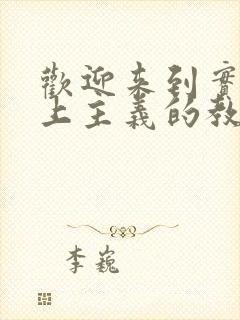 歡迎來到實
上主義的教
李巍